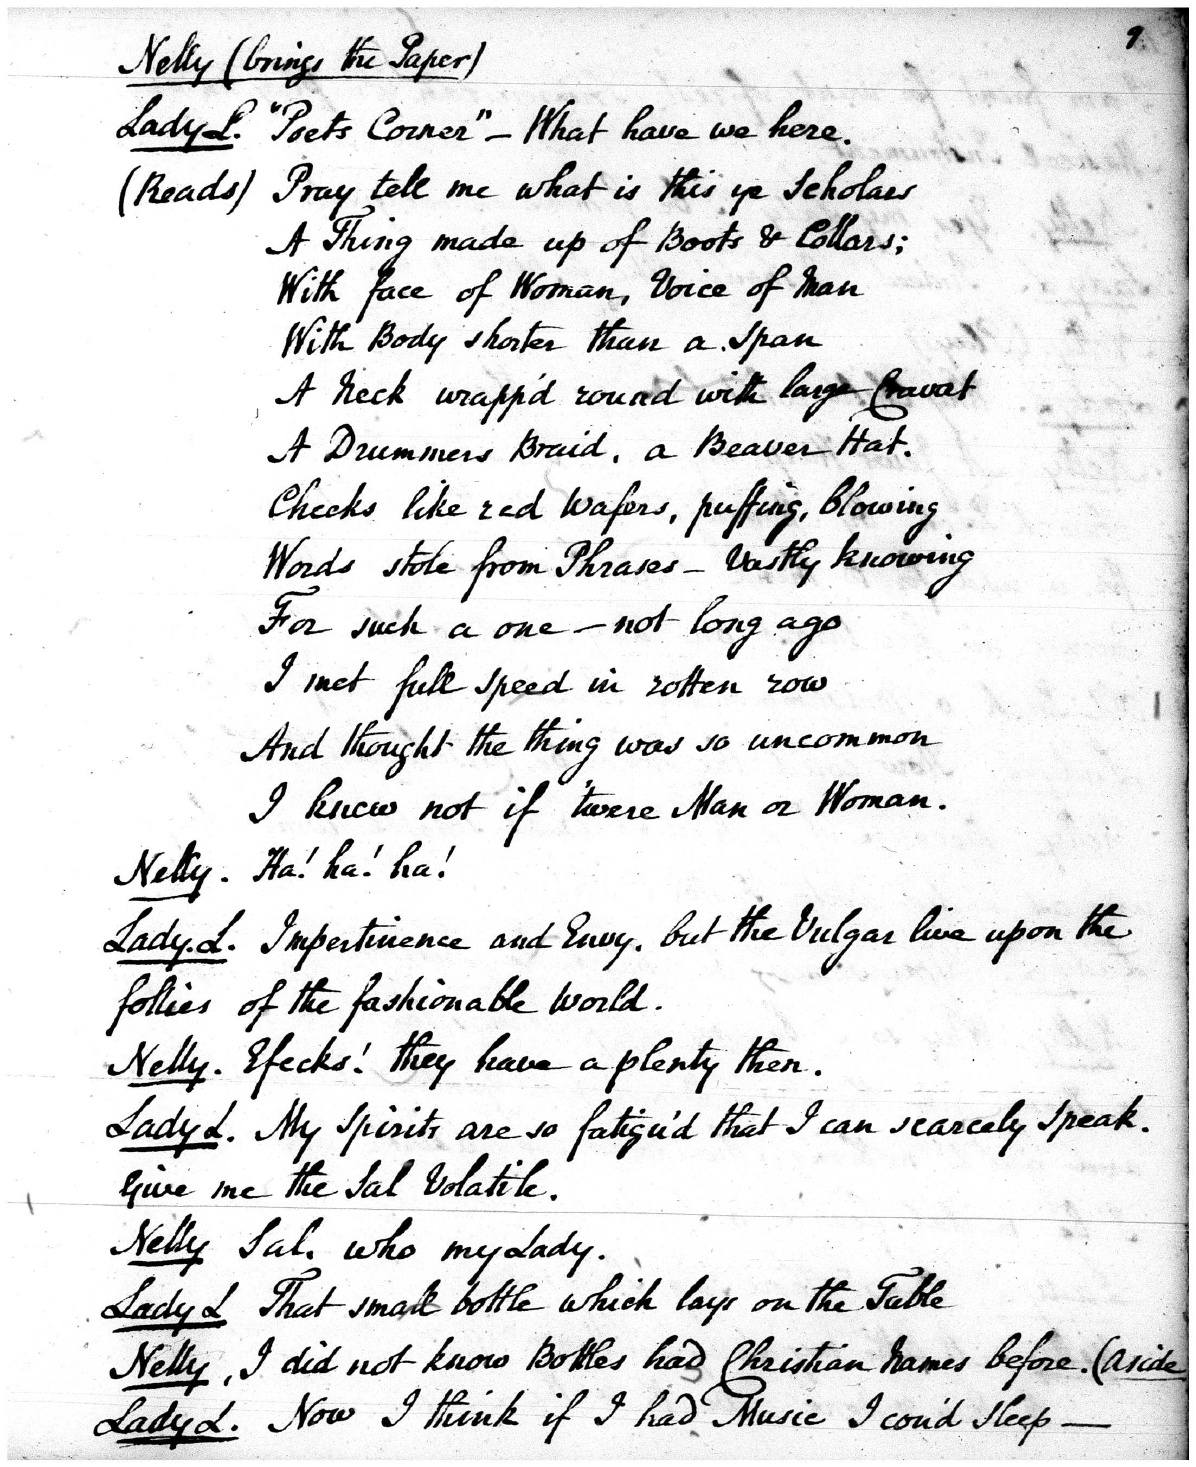 9
Nelly (brings the Paper)
Lady L. "Poets Corner" – What have we here.
(Reads) Pray tell me what is this ye Scholars
A Thing made up of Boots & Collars;
With face of Woman, Voice of Man
With Body shorter than a Span
A Neck wrapp'd round with large Cravat
A Drummers Braid, a Beaver Hat.
Cheeks like red Wafers, puffing, blowing
Words stole from Phrases – Vastly knowing
For such a one – not long ago
I met full speed in rotten row
And thought the thing was so uncommon
I knew not if 'twere Man or Woman.
Nelly. Ha! ha! ha!
Lady. L. Impertinence and Envy. but the Vulgar live upon the
follies of the fashionable World.
Nelly. Efecks! they have a plenty then.
Lady L. My Spirits are so fatigu'd that I can scarcely Speak.
Give me the Sal Volatile.
Nelly Sal. who my Lady.
Lady L That small bottle which lays on the Table
Nelly, I did not know Bottles had Christian Names before. (aside
Lady L. Now I think if I had Music I cou'd Sleep —